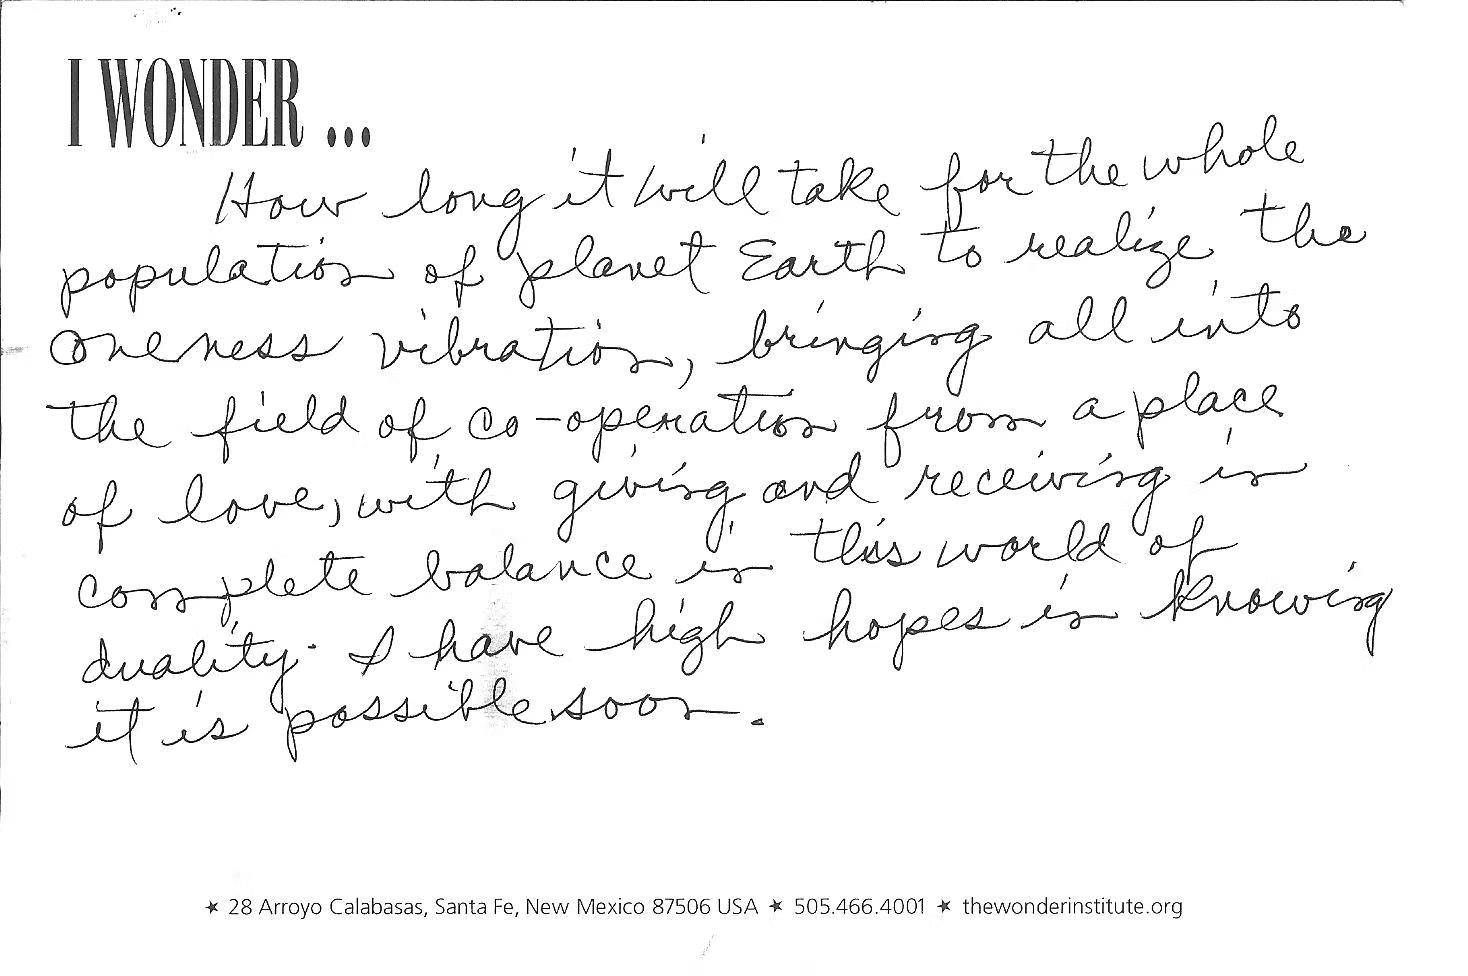 I WONDER ...
How long it will take for the whole
population of planet Earth to realize the
oneness vibration, bringing all into
the field of co-operation from a place
of love, with giving and receiving in
complete balance in this world of
duality. I have high hopes in knowing
it is possible soon.
★ 28 Arroyo Calabasas, Santa Fe, New Mexico 87506 USA ★ 505.466.4001 ★ thewonderinstitute.org